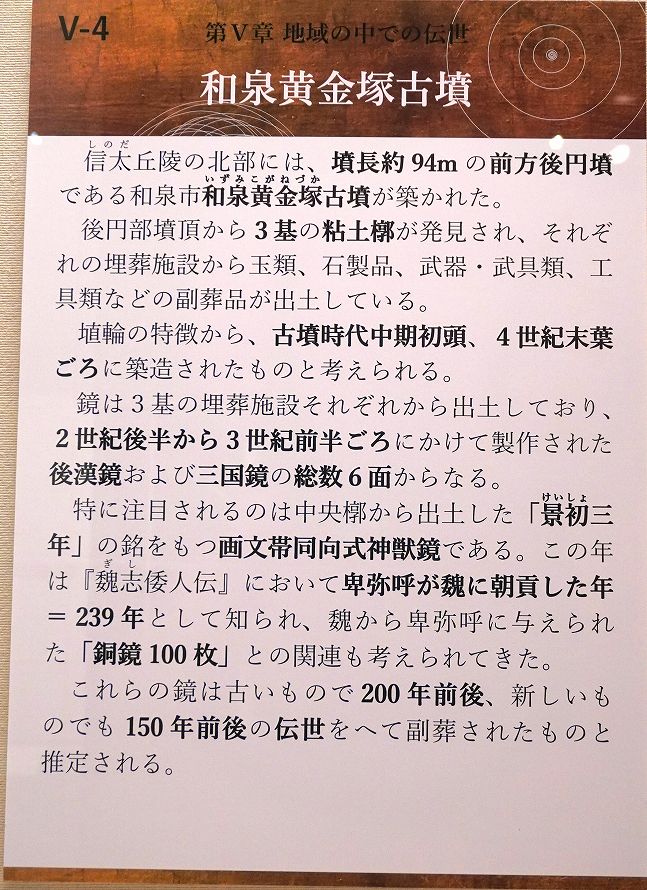 V-4
第Ⅴ章 地域の中での伝世
和泉黄金塚古墳
しのだ
信太丘陵の北部には、墳長約 94m の前方後円墳
いずみこがねづか
である和泉市和泉黄金塚古墳が築かれた。
後円部墳頂から３基の粘土槨が発見され、それぞ
れの埋葬施設から玉類、石製品、武器・武具類、工
具類などの副葬品が出土している。
埴輪の特徴から、古墳時代中期初頭、４世紀末葉
ごろに築造されたものと考えられる。
鏡は３基の埋葬施設それぞれから出土しており、
２世紀後半から３世紀前半ごろにかけて製作された
後漢鏡および三国鏡の総数６面からなる。
けいしょ
特に注目されるのは中央槨から出土した「景初三
年」の銘をもつ画文帯同向式神獣鏡である。この年
ぎし
は『魏志倭人伝』において卑弥呼が魏に朝貢した年
＝ 239 年として知られ、魏から卑弥呼に与えられ
た「銅鏡 100 枚」との関連も考えられてきた。
これらの鏡は古いもので 200 年前後、新しいも
のでも 150 年前後の伝世をへて副葬されたものと
推定される。